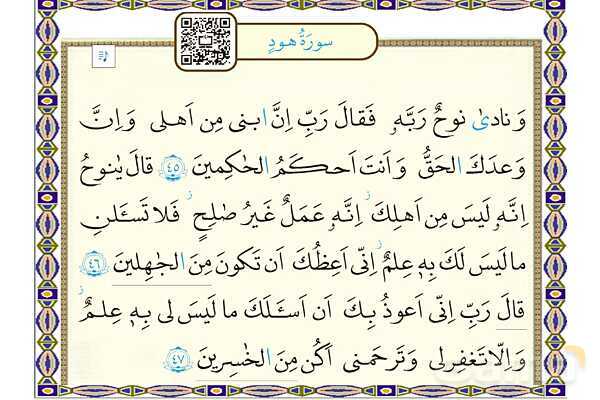 سورَةُ هودٍ
وَ نادىٰ نوحٌ رَبَّهٗ فَقالَ رَبِّ اِنَّ ابنی مِن اَهلی وَ اِنَّ
وَعدَكَ الحَقُّ وَ اَنتَ اَحكَمُ الحٰكِمينَ ٤٥ قالَ يٰنوحُ
اِنَّهٗ لَيسَ مِن اَهلِكَ اِنَّهٗ عَمَلٌ غَيرُ صٰلِحٍ فَلا تَسـَٔلنِ
ما لَيسَ لَكَ بِهٖ عِلمٌ اِنّی اَعِظُكَ اَن تَكونَ مِنَ الجٰهِلينَ ٤٦
قالَ رَبِّ اِنّی اَعوذُ بِكَ اَن اَسـَٔلَكَ ما لَيسَ لی بِهٖ عِلمٌ
وَ اِلّا تَغفِر لی وَ تَرحَمنی اَكُن مِنَ الخٰسِرينَ ٤٧